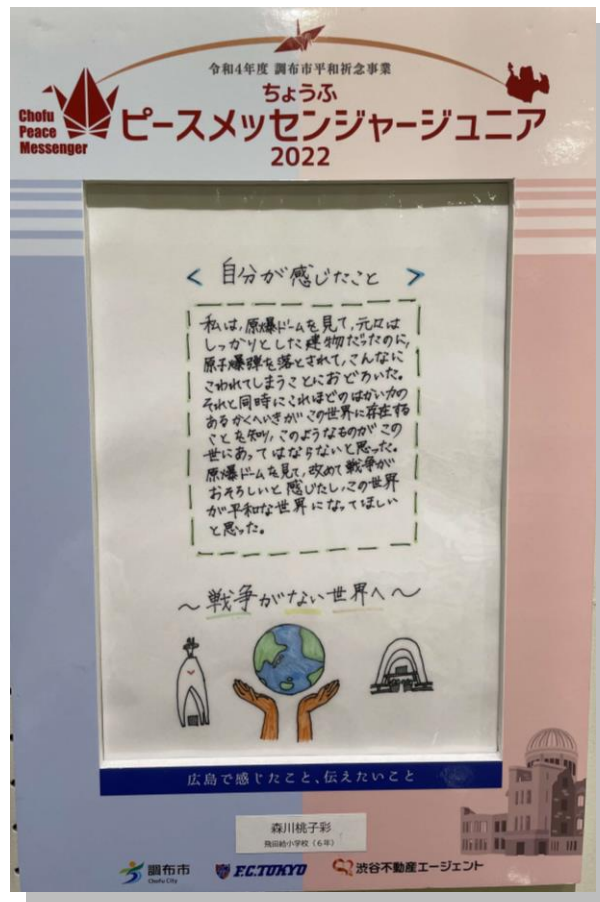 令和4年度 調布市平和祈念事業
ちょうふ
Chofu
Peace
Messenger
ピースメッセンジャージュニア
2022
< 自分が感じたこと >
私は、原爆ドームを見て、元々は
しっかりとした建物だったのに、
原子爆弾を落とされて、こんなに
こわれてしまうことにおどろいた。
それと同時にこれほどのはかい力の
あるかくへいきがこの世界に存在する
ことを知り、このようなものがこの
世にあってはならないと思った。
原爆ドームを見て、改めて戦争が
おそろしいと感じたし、この世界
が平和な世界になってほしい
と思った。
〜戦争がない世界へ〜
広島で感じたこと、伝えたいこと
森川桃子彩
飛田給小学校（6年）
調布市
Chofu City
F.C.TOKYO
渋谷不動産エージェント